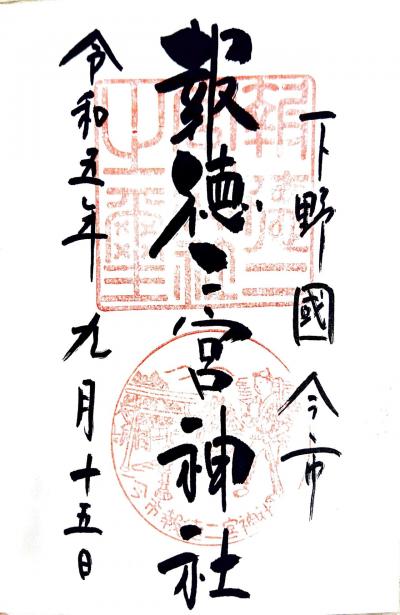 下野國今市
報徳二宮神社
令和五年九月十五日
今市報徳二宮神社